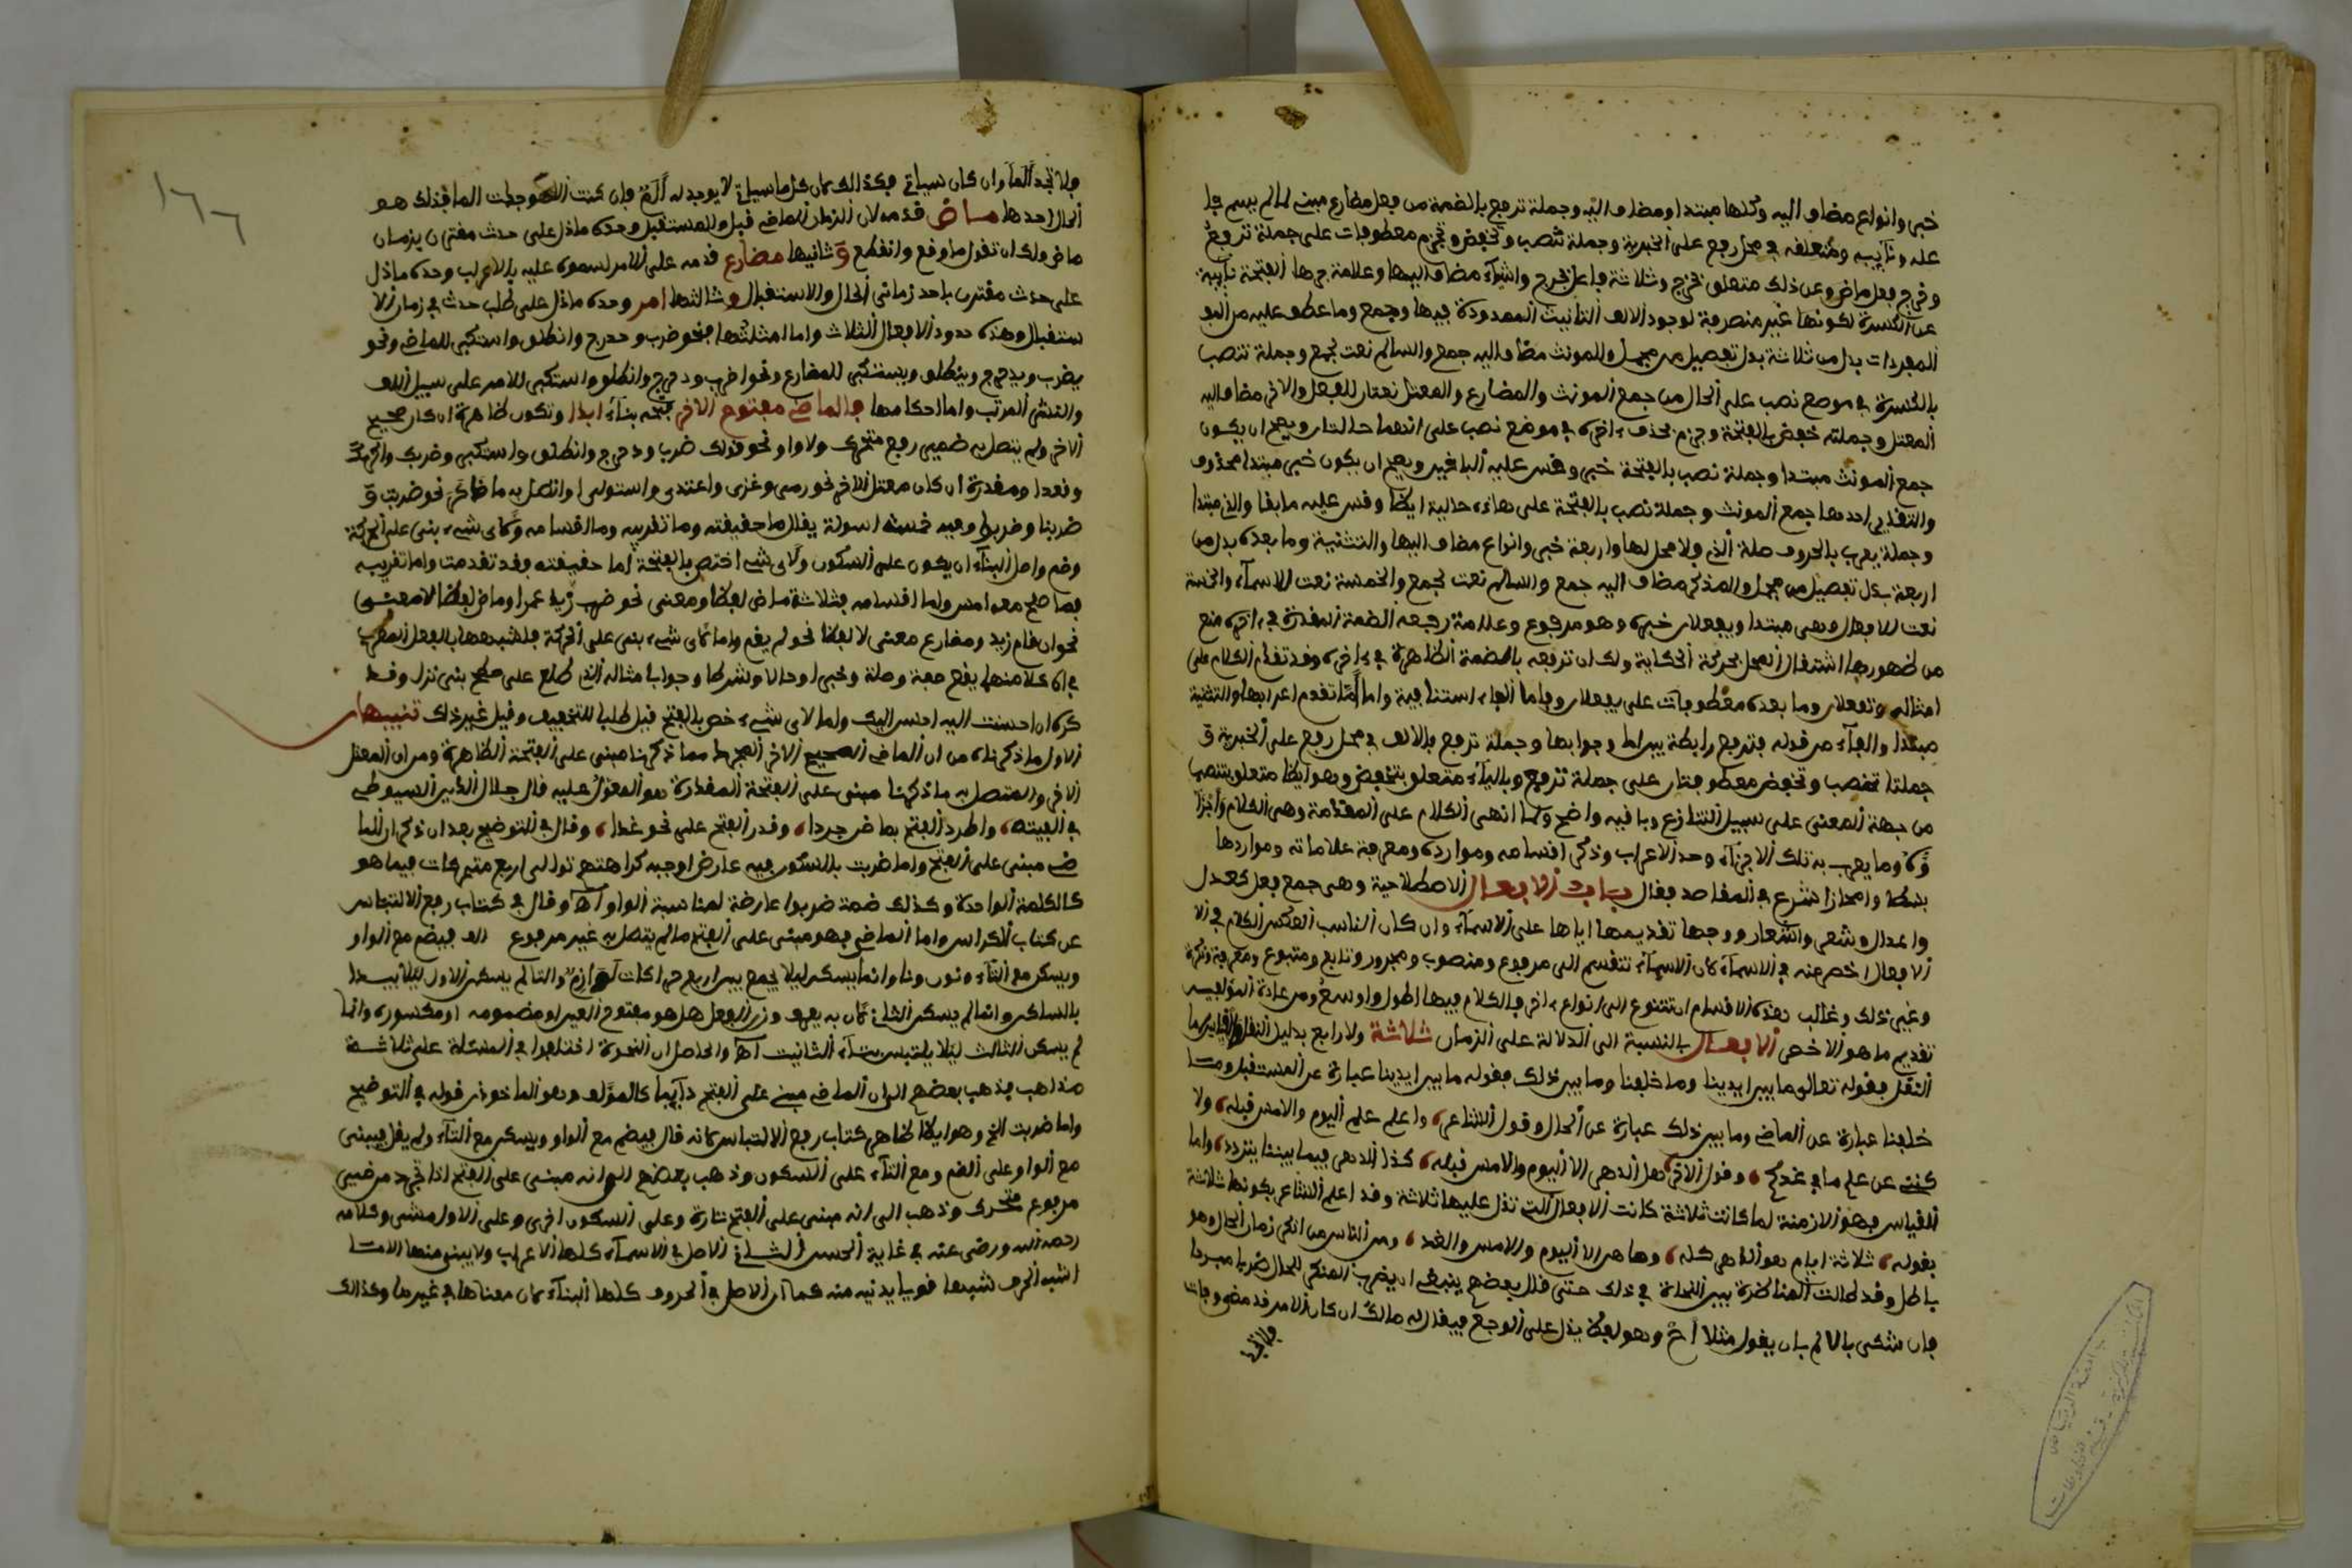 خبر وانواع مضاف اليه وكلها مبتدا ومضاف اليه وجملة ترفع بالضمة من فعل مضارع مبني لما لم يسم فا
عله ونايبه ومتعلقه في محل رفع على الخبرية وجملة تنصب وتخفض وتجزم معطوفات على جملة ترفع
وخرج فعل ماض وعن ذلك متعلق بخرج وثلاثة فاعل بخرج واشياء مضاف اليها وعلامة جرها الفتحة نايبة
عن الكسرة لكونها غير منصرفة لوجود الالف التانيث الممدودة فيها وجمع وما عطف عليه من المو
المفردات بدل من ثلاثة بدل تفصيل من مجمل والمونث مضاف اليه جمع والسالم نعت لجمع وجملة تنصب
بالكسرة في موضع نصب على الحال من جمع المونث والمضارع والمعتل نعتان للفعل والاخر مضاف اليه
المعتل وجملته خفض بالفتحة وجزم بحذف اخره في موضع نصب على انهما حالتان ويصح ان يكون
جمع المونث مبتدا وجملة نصب بالفتحة خبر وقس عليه الباقيين ويصح ان يكون خبر مبتدا محذوف
والتقدير احدها جمع المونث وجملة نصب بالفتحة على هاذه حالية ايضا وقس عليه ما بقا والذي مبتدا
وجملة يعرب بالحروف صلة الذي ولا محل لها واربعة خبر وانواع مضاف اليها والتثنية وما بعده بدل من
اربعة بدل تفصيل من مجمل والمذكر مضاف اليه جمع والسالم نعت لجمع والخمسة نعت الاسماء والخمسة
نعت للافعال وهي مبتدا ويفعلان خبره وهو مرفوع وعلامة رفعه الضمة المقدرة في اخره منع
من ظهورها اشتغال المحل بحركة الحكاية ولك ان ترفعه بالضمة الظاهرة في اخره وقد تقدم الكلام على
امثاله وتفعلان وما بعده معطوفات على يفعلان وفاما الفاء استئنافية واما لما تقدم اعرابها والتثنية
مبتدا والفاء من قوله فترفع رابطة بين اما وجوابها وجملة ترفع بالالف في محل رفع على الخبرية و
جملتا تنصب وتخفض معطوفتان على جملة ترفع وبالياء متعلق بتخفض وهو ايضا متعلق بتنصب
من جهة المعنى على سبيل التنازع وباقيه واضح ولما انهى الكلام على المقدمة وهي الكلام واجزا
ؤه وما يعرب به تلك الاجزاء وحد الاعراب وذكر اقسامه وموارده ومعرفة علاماته ومواردها
بسطا وايجازا شرع في المقاصد فقال باب الافعال الاصطلاحية وهي جمع فعل كعدل
واعدال وشعر واشعار ووجها تقديمها اياها على الاسماء وان كان الناسب العكس الكلام في الا
الافعال اخصر منه في الاسماء لان الاسماء تنقسم الى مرفوع ومنصوب ومجرور وتابع ومتبوع ومعرفة ونكرة
وغير ذلك وغالب هذه الاقسام ان تتنوع الى انواع اخر فالكلام فيها اطول واوسع ومن عادة المولفين
تقديم ما هو الاخصر الافعال بالنسبة الى الدلالة على الزمان ثلاثة ولا رابع بدليل النقل والقياس اما
النقل فقوله تعالى ما بين ايدينا وما خلفنا وما بين ذلك فقوله ما بين ايدينا عبارة عن المستقبل وما
خلفنا عبارة عن الماضي وما بين ذلك عبارة عن الحال وقول الشاعر، واعلم علم اليوم والامس قبله، ولا
كنني عن علم ما في غد عم، وقول الاخر هل الدهر الا اليوم والامس قبله، كذا الدهر فيما بيننا يتردد، واما
القياس فهو الازمنة لما كانت ثلاثة كانت الافعال التي تدل عليها ثلاثة وقد اعلم الشاعر بكونها ثلاثة
بقوله، ثلاثة ايام هو الدهر كله، وما هن الا اليوم والامس والغد، ومن الناس من انكر زمان الحال وهو
باطل وقد طالت المناظرة بين النحاة في ذلك حتى قال بعضهم ينبغي ان يضرب المنكر للحال ضربا مبرحا
فان شكى بالالم بان يقول مثلا اخ وهو لفظ يدل على الوجع فيقال له مالك ان كان الامر قد مضى وفات
فلا تجد
١٦٦
فلا تجد الما وان كان سياتي فكذالك لان كل ما سياتي لا يوجد له الم فان كنت الان وجدت الما فذلك هو
الحال احدها ماض قدمه لان الزمان الماضي قبل والمستقبل وحده ما دل على حدث مقترن بزمان
ماض ولك ان تقول ما وقع وانقطع وثانيها مضارع قدمه على الامر لسموه عليه بالاعراب وحده ما دل
على حدث مقترن باحد زماني الحال والاستقبال وثالثها امر وحده ما دل على طلب حدث في زمان الا
ستقبال وهذه حدود الافعال الثلاث واما امثلتها فنحو ضرب ودحرج وانطلق واستكبر للماضي ونحو
يضرب ويدحرج وينطلق ويستكبر للمضارع ونحو اضرب ودحرج وانطلق واستكبر للامر على سبيل اللف
والنشر المرتب واما احكامها فالماضي مفتوح الاخر فتحة بناء ابدا وتكون ظاهرة ان كان صحيح
الاخر ولم يتصل به ضمير رفع متحرك ولا واو نحو قولك ضرب ودحرج وانطلق واستكبر وضربك واكرمك
وقعدا ومقدرة ان كان معتل الاخر نحو رمى وغزى واعتدى واستولى او اتصل به ما ذكر نحو ضربت و
ضربنا وضربوا وفيه خمسة اسولة يقال ما حقيقته وما تقريبه وما اقسامه ولاي شيء بنى على الحركة
وقد واصل البناء ان يكون على السكون ولاي شيء اختص بالفتحة اما حقيقته فقد تقدمت واما تقريبه
فما صلح معه امس واما اقسامه فثلاثة ماض لفظا ومعنى نحو ضرب زيد عمرا وماض لفظا لا معنى
نحو ان قام زيد ومضارع معنى لا لفظا نحو لم يقم واما لاي شيء بنى على الحركة فلشبهها بالفعل المعرب
في ان كلا منهما يقع صفة وصلة وخبرا وحالا وشرطا وجوابا مثاله الذي طلع على صلح بنى نزل وقد
كره ان احسنت اليه احسن اليك واما لاي شيء خص بالفتح قيل طلبا للتخفيف وقيل غير ذلك تنبيهان
الاول ما ذكرناه من ان الماضي الصحيح الاخر المجرد مما ذكرنا مبني على الفتحة الظاهرة ومن ان المعتل
الاخر والمتصل به ما ذكرنا مبنى على الفتحة المقدرة هو المعول عليه قال جلال الدين السيوطي
في الفيته، واطرد الفتح بماض جردا، وقدر الفتح على نحو غدا، وقال في التوضيح بعد ان ذكر ان الما
ضي مبنى على الفتح واما ضربت بالسكون فيه عارض اوجبه كراهتهم توالي اربع متحركات فيما هو
كالكلمة الواحدة وكذلك ضمة ضربوا عارضة لمناسبة الواو اه وقال في كتاب رفع الالتباس
عن كتاب الكراس واما الماضي فهو مبنى على الفتح ما لم يتصل به غير مرفوع الف فيضم مع الواو
ويسكن مع التاء ونون ونا وانما يسكن ليلا يجمع بين اربع حركات لوازم والتالم يسكن الاول ليلا يبتدا
بالساكن وانما لم يسكن الثاني لان به يعرف وزن الفعل هل هو مفتوح العين او مضمومه او مكسوره وانما
لم يسكن الثالث ليلا يلتبس بتاء التانيث اه والحاصل ان النحوة اختلفوا في المسئلة على ثلاثة
مذاهب فذهب بعضهم الى ان الماضي مبني على الفتح دايما كالمولف وهو الماخوذ من قوله في التوضيح
واما ضربت الخ وهو ايضا ظاهر كتاب رفع الالتباس لانه قال فيضم مع الواو ويسكن مع التاء ولم يقل فيبنى
مع الواو على الضم ومع التاء على السكون وذهب بعضهم الى انه مبنى على الفتح اذا تجرد من ضمير
مرفوع متحرك وذهب الى انه مبنى على الفتح تارة وعلى السكون اخرى وعلى الاول مشى وكلامه
رحمه الله ورضى عنه في غاية الحسن الثاني الاصل في الاسماء كلها الاعراب ولا يبنى منها الا ما
اشبه الحرف شبها قويا يدنيه منه كما ان الاصل في الحروف كلها البناء لان معناها في غيرها وكذالك